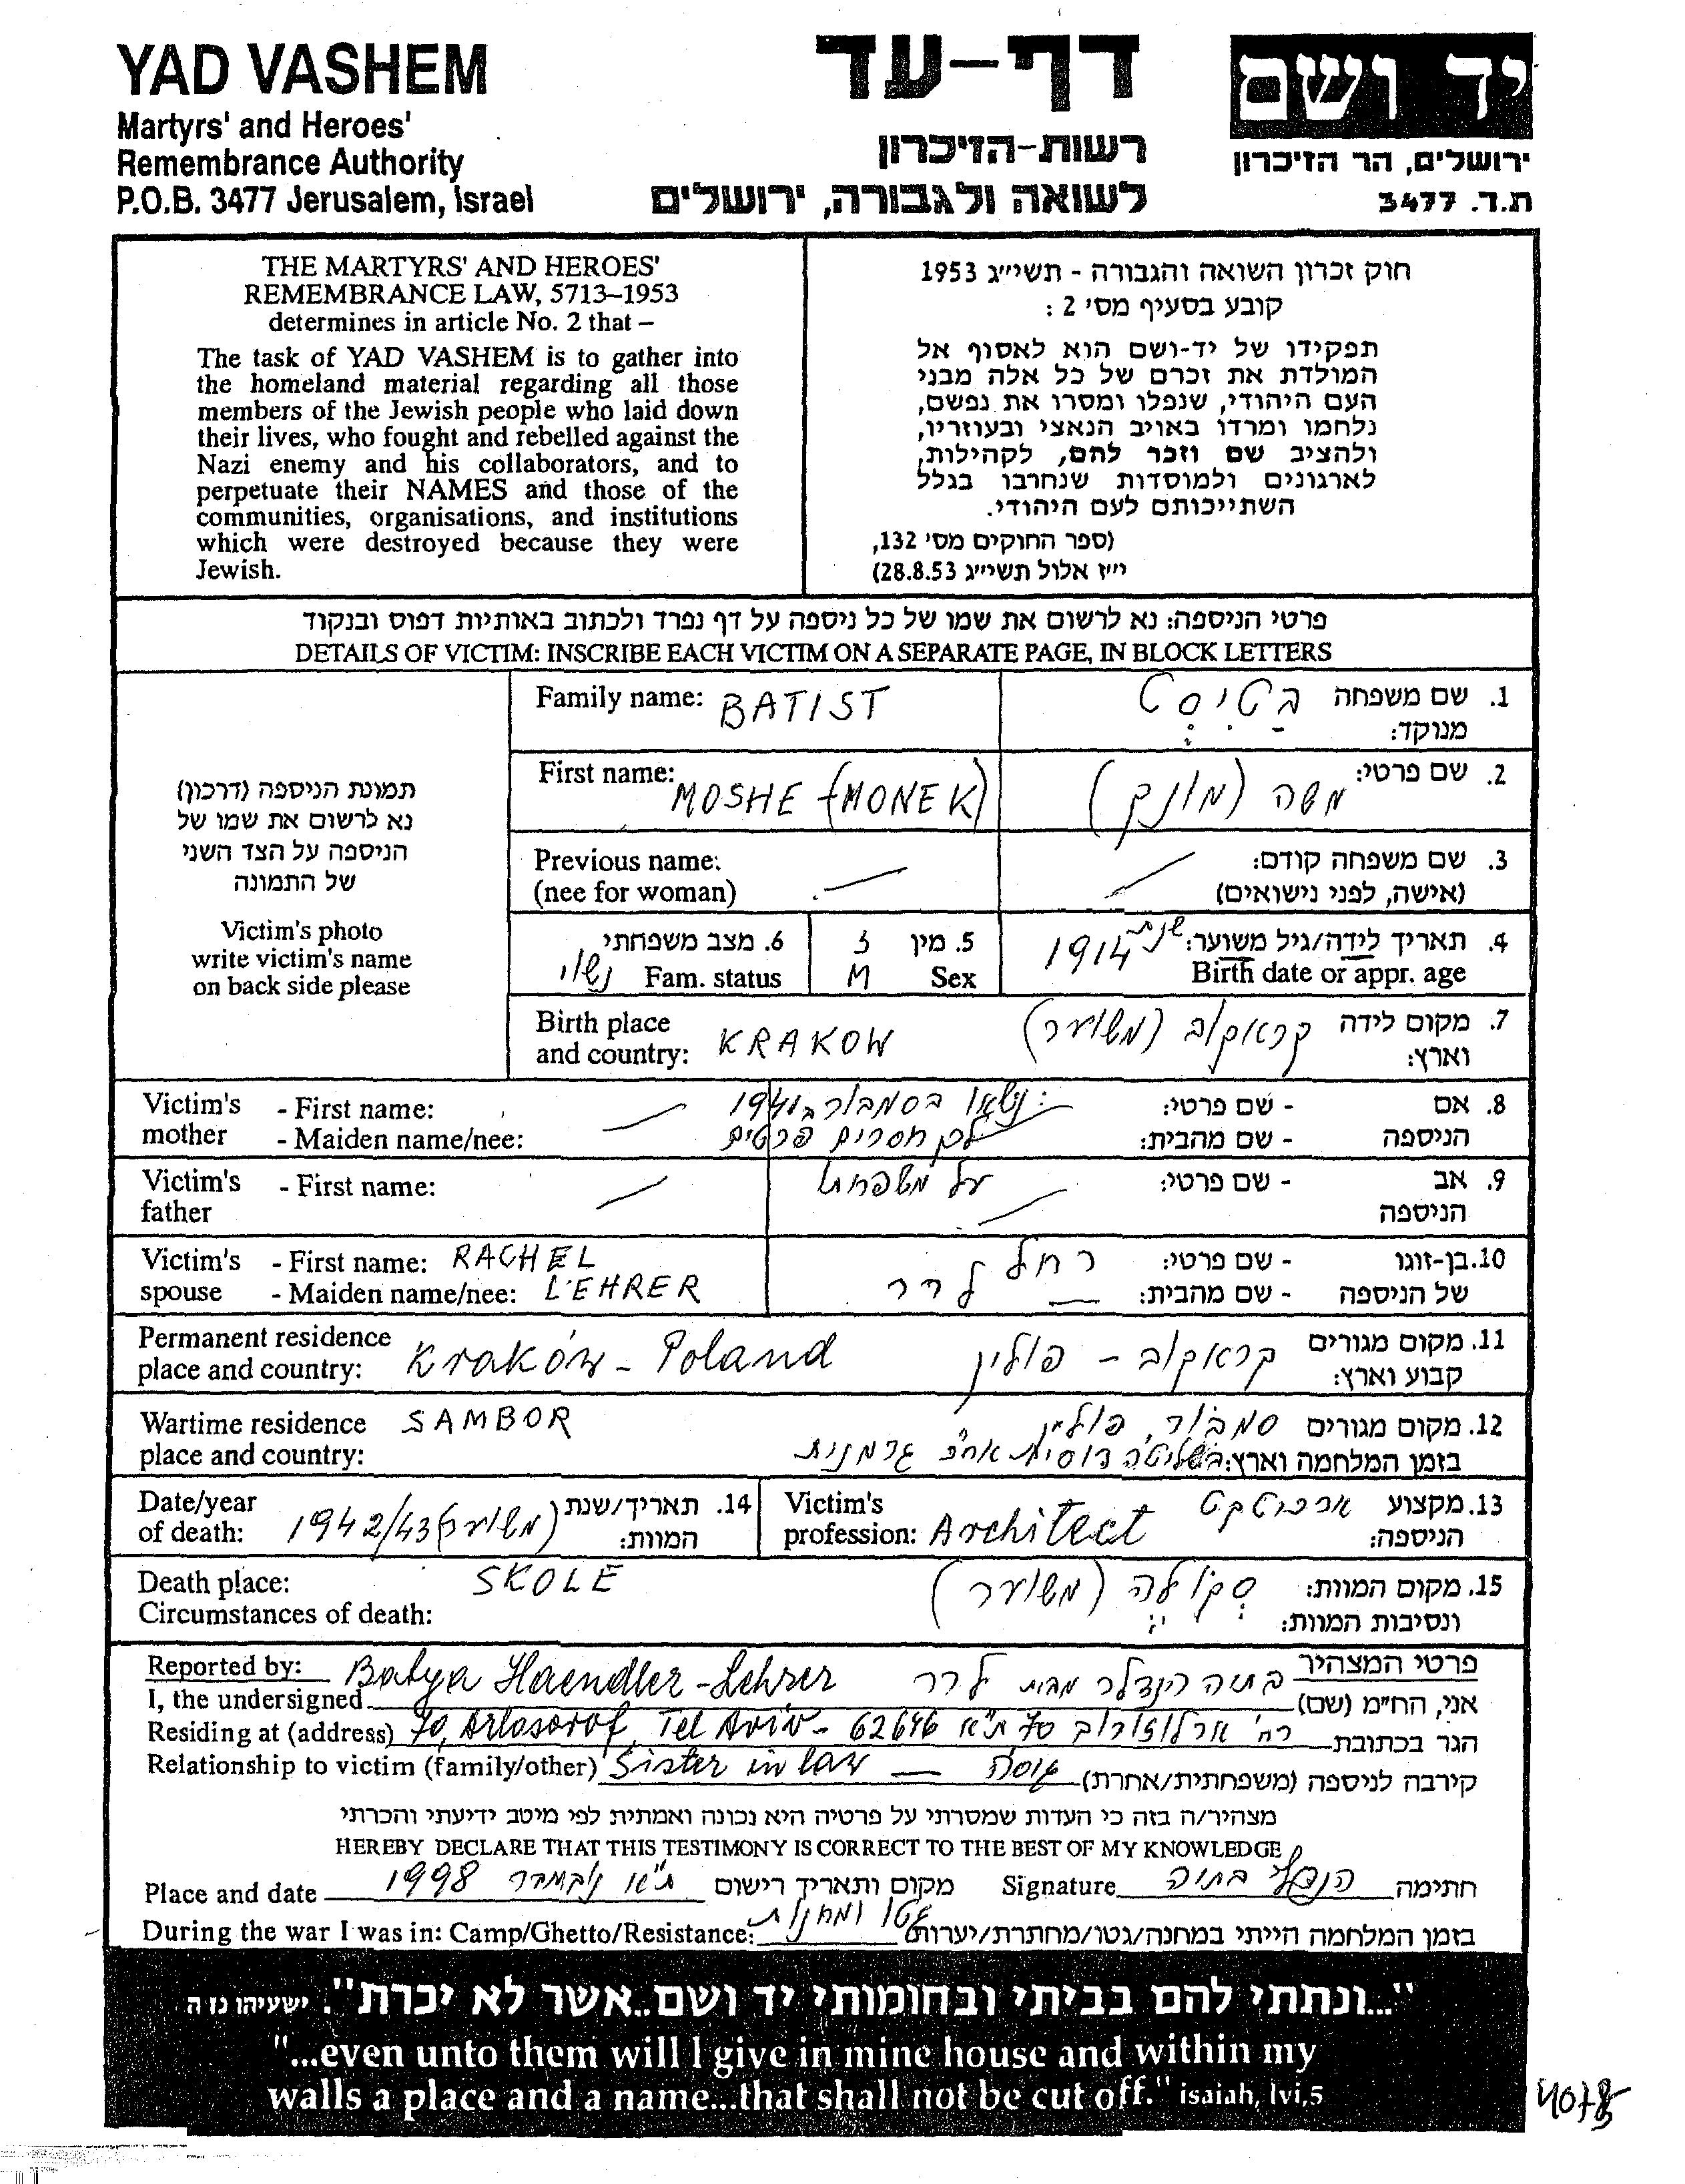 YAD VASHEM
Martyrs' and Heroes'
Remembrance Authority
P.O.B. 3477 Jerusalem, Israel
דף-עד
רשות-הזיכרון
לשואה ולגבורה, ירושלים
יד ושם
ירושלים, הר הזיכרון
ת.ד. 3477
THE MARTYRS' AND HEROES'
REMEMBRANCE LAW, 5713–1953
determines in article No. 2 that –
The task of YAD VASHEM is to gather into
the homeland material regarding all those
members of the Jewish people who laid down
their lives, who fought and rebelled against the
Nazi enemy and his collaborators, and to
perpetuate their NAMES and those of the
communities, organisations, and institutions
which were destroyed because they were
Jewish.
חוק זכרון השואה והגבורה - תשי״ג 1953
קובע בסעיף מס׳ 2 :
תפקידו של יד-ושם הוא לאסוף אל
המולדת את זכרם של כל אלה מבני
העם היהודי, שנפלו ומסרו את נפשם,
נלחמו ומרדו באויב הנאצי ובעוזריו,
ולהציב שם וזכר להם, לקהילות,
לארגונים ולמוסדות שנחרבו בגלל
השתייכותם לעם היהודי.
(ספר החוקים מס׳ 132,
י״ז אלול תשי״ג 28.8.53)
פרטי הניספה: נא לרשום את שמו של כל ניספה על דף נפרד ולכתוב באותיות דפוס ובנקוד
DETAILS OF VICTIM: INSCRIBE EACH VICTIM ON A SEPARATE PAGE, IN BLOCK LETTERS
תמונת הניספה (דרכון)
נא לרשום את שמו של
הניספה על הצד השני
של התמונה
Victim's photo
write victim's name
on back side please
Family name: BATIST
1. שם משפחה בַּטִיסְט
מנוקד:
First name: MOSHE (MONEK)
2. שם פרטי: משה (מונק)
Previous name:
(nee for woman)
3. שם משפחה קודם:
(אישה, לפני נישואים)
4. תאריך לידה/גיל משוער: שנת 1914
Birth date or appr. age
5. מין ז
Sex M
6. מצב משפחתי
Fam. status נשוי
Birth place
and country: KRAKOW
7. מקום לידה קראקוב (משוער)
וארץ:
Victim's mother - First name:
- Maiden name/nee:
8. אם הניספה - שם פרטי:
- שם מהבית:
נישאו בסמבור ב 1941
לכן חסרים פרטים
על משפחתו
Victim's father - First name:
9. אב הניספה - שם פרטי:
Victim's spouse - First name: RACHEL
- Maiden name/nee: LEHRER
10. בן-זוגו של הניספה - שם פרטי: רחל
- שם מהבית: לרר
Permanent residence
place and country: Kraków - Poland
11. מקום מגורים קראקוב - פולין
קבוע וארץ:
Wartime residence SAMBOR
place and country:
12. מקום מגורים סמבור, פולין
בזמן המלחמה וארץ: בשליטה רוסית אח"כ גרמנית
Date/year
of death: 1942/43 (משוער)
14. תאריך/שנת
המוות:
Victim's
profession: Architect
13. מקצוע ארכיטקט
הניספה:
Death place: SKOLE
Circumstances of death:
15. מקום המוות: סקולה (משוער)
ונסיבות המוות:
Reported by:
I, the undersigned Batya Haendler-Lehrer
פרטי המצהיר
אני, הח״מ (שם) בתיה הנדלר מבית לרר
Residing at (address) 70, Arlosorof, Tel Aviv - 62646
הגר בכתובת רח' ארלוזורוב 70 ת"א
Relationship to victim (family/other) Sister in law
קירבה לניספה (משפחתית/אחרת) גיסה
מצהיר/ה בזה כי העדות שמסרתי על פרטיה היא נכונה ואמתית לפי מיטב ידיעתי והכרתי
HEREBY DECLARE THAT THIS TESTIMONY IS CORRECT TO THE BEST OF MY KNOWLEDGE
Place and date ת"א נובמבר 1998 מקום ותאריך רישום
Signature הנדלר בתיה חתימה
During the war I was in: Camp/Ghetto/Resistance: גטו ומחנות
בזמן המלחמה הייתי במחנה/גטו/מחתרת/יערות
"...ונתתי להם בביתי ובחומותי יד ושם..אשר לא יכרת". ישעיהו נו ה
"...even unto them will I give in mine house and within my
walls a place and a name...that shall not be cut off." isaiah, lvi,5